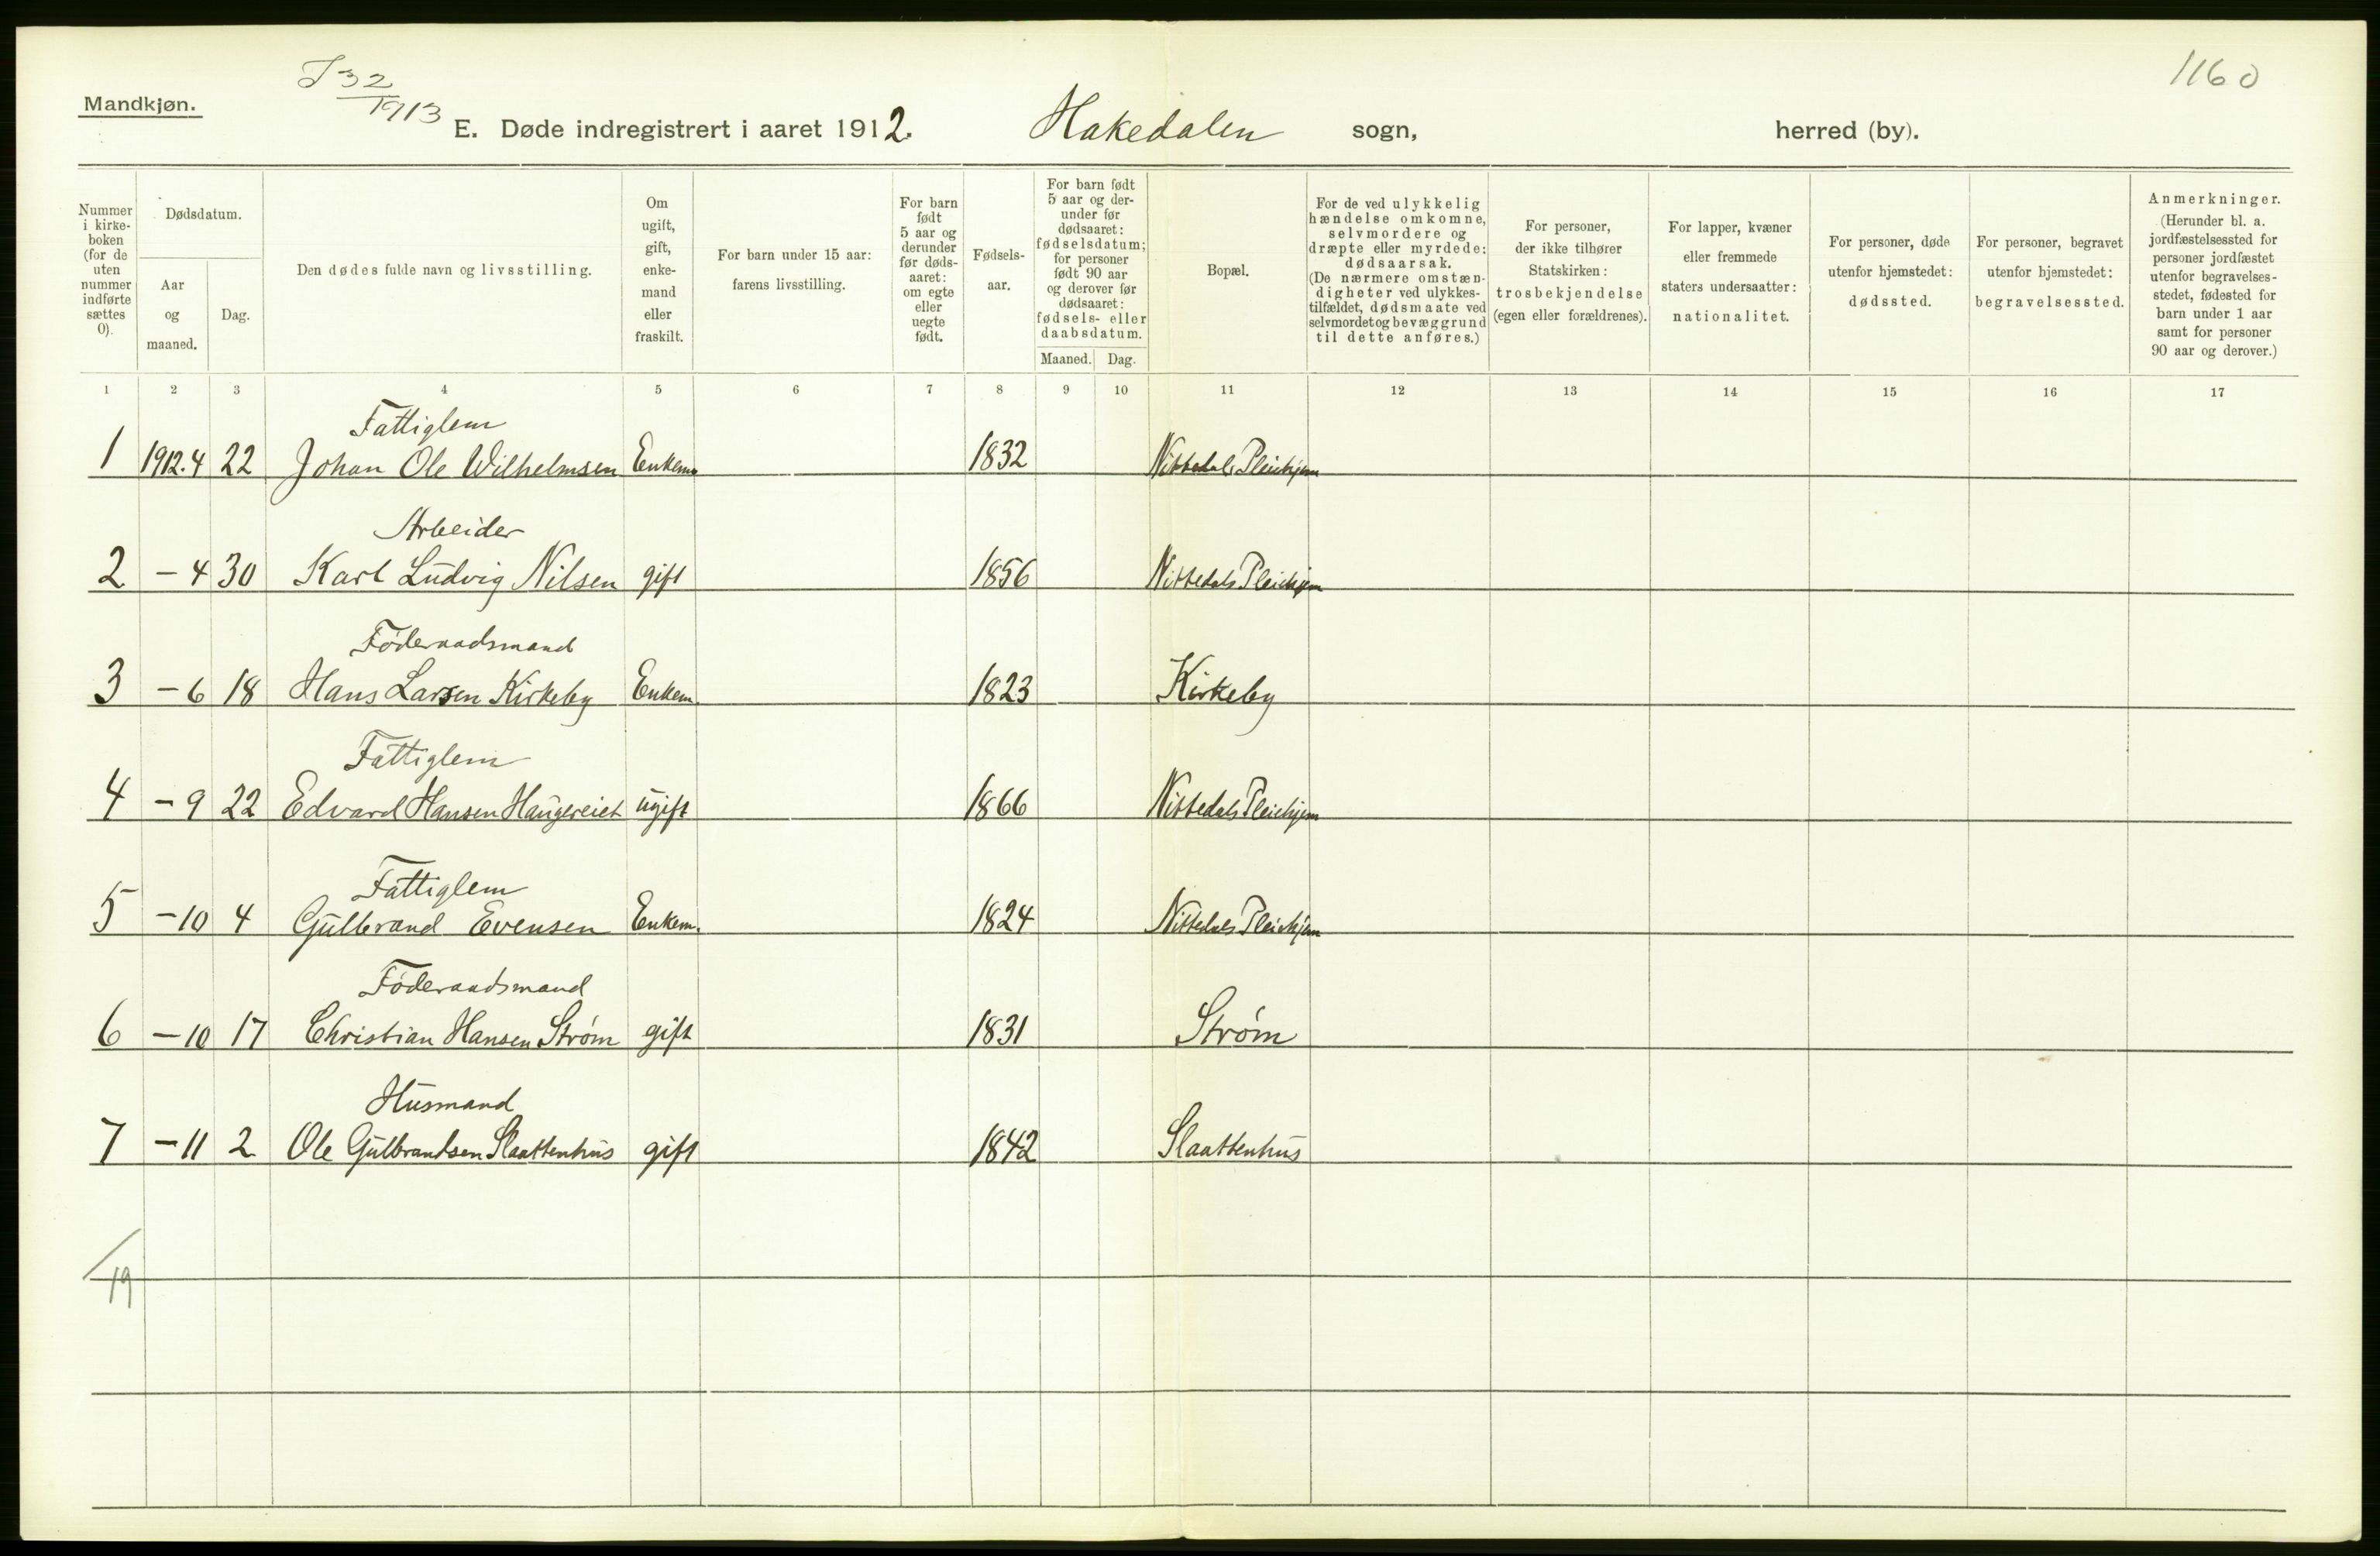 Mandkjøn.
J 32
1913
1160
E. Døde indregistrert i aaret 1912. Hakedalen sogn, herred (by).
Nummer i kirke-boken (for de uten nummer indførte sættes 0).
Dødsdatum.
Aar og maaned.
Dag.
Den dødes fulde navn og livsstilling.
Om ugift, gift, enke-mand eller fraskilt.
For barn under 15 aar: farens livsstilling.
For barn født 5 aar og derunder før døds-aaret: om egte eller uegte født.
Fødsels-aar.
For barn født 5 aar og der-under før dødsaaret: fødselsdatum; for personer født 90 aar og derover før dødsaaret: fødsels- eller daabsdatum.
Maaned. Dag.
Bopæl.
For de ved ulykkelig hændelse omkomne, selvmordere og dræpte eller myrdede: dødsaarsak. (De nærmere omstæn-digheter ved ulykkes-tilfældet, dødsmaate ved selvmordet og bevæggrund til dette anføres.)
For personer, der ikke tilhører Statskirken: trosbekjendelse (egen eller forældrenes).
For lapper, kvæner eller fremmede staters undersaatter: nationalitet.
For personer, døde utenfor hjemstedet: dødssted.
For personer, begravet utenfor hjemstedet: begravelsessted.
Anmerkninger. (Herunder bl. a. jordfæstelsessted for personer jordfæstet utenfor begravelses-stedet, fødested for barn under 1 aar samt for personer 90 aar og derover.)
1 2 3 4 5 6 7 8 9 10 11 12 13 14 15 16 17
Fattiglem
1 1912.4 22 Johan Ole Wilhelmsen Enkem. 1832 Nittedals Pleiehjem
Arbeider
2 – 4 30 Karl Ludvig Nilsen gift 1856 Nittedals Pleiehjem
Føderaadsmand
3 – 6 18 Hans Larsen Kirkeby Enkem. 1823 Kirkeby
Fattiglem
4 – 9 22 Edvard Hansen Haugereiet ugift 1866 Nittedals Pleiehjem
Fattiglem
5 – 10 4 Gulbrand Evensen Enkem. 1824 Nittedals Pleiehjem
Føderaadsmand
6 – 10 17 Christian Hansen Strøm gift 1831 Strøm
Husmand
7 – 11 2 Ole Gulbrandsen Slaattenhus gift 1842 Slaattenhus
19